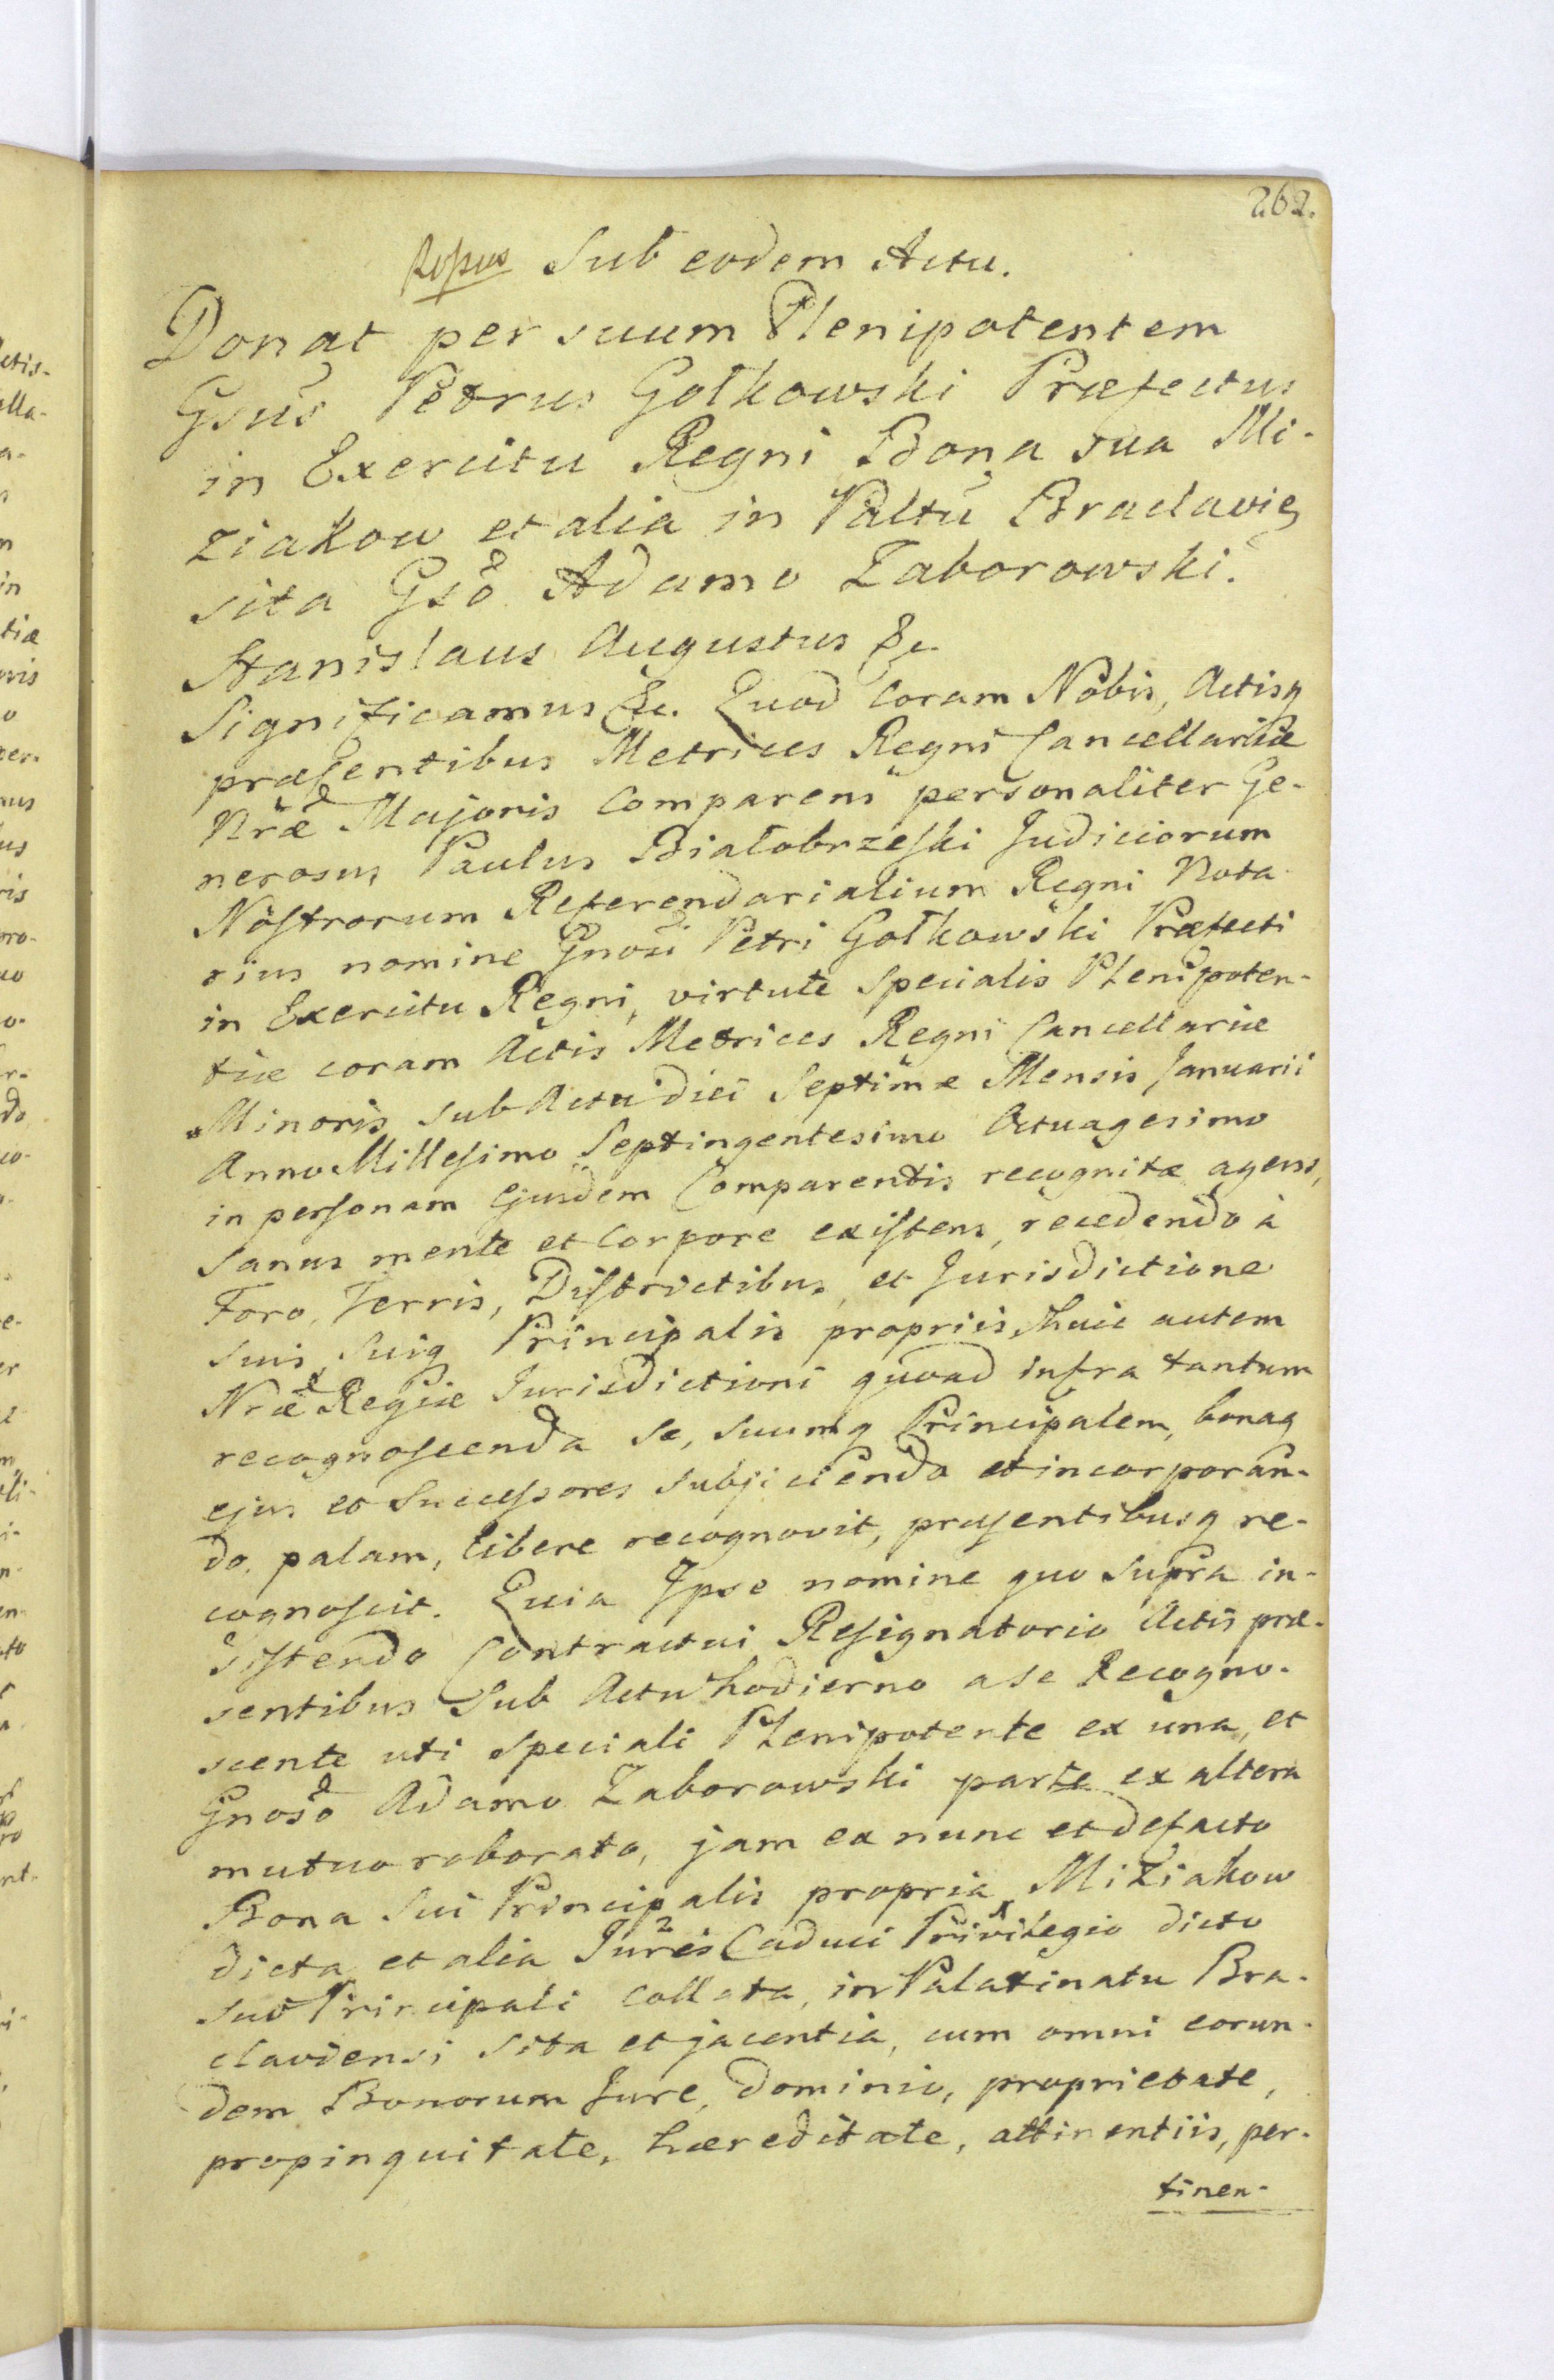 262.
Sub eodem Actu.
Donat per suum Plenipotentem
Gsus Petrus Gołkowski Præfectus
in Exercitu Regni Bona sua Mi-
ziakow et alia in Paltu Braclavien
sita Gso Adamo Zaborowski.
Stanislaus Augustus &c.
Significamus &c. Quod Coram Nobis, Actisq
præsentibus Metrices Regni Cancellariæ
Nræ Majoris Comparens personaliter Ge-
nerosus Paulus Białobrzeski Judiciorum
Nostrorum Referendarialium Regni Nota-
rius nomine Gnosi Petri Gołkowski Præfecti
in Exercitu Regni, virtute specialis Plenipoten-
tiæ coram Actis Metrices Regni Cancellariæ
Minoris sub Actu diei Septimæ Mensis Januarii
Anno Millesimo Septingentesimo Octuagesimo
in personam ejusdem Comparentis recognitæ agens,
sanus mente et Corpore existens, recedendo à
Foro, Terris, Districtibus, et Jurisdictione
suis, suiq Principalis propriis, huic autem
Nræ Regiæ Jurisdictioni quoad infra tantum
recognoscenda se, suumq Principalem, bonaq
ejus et Successores subjiciendo et incorporan-
do, palam, libere recognovit, præsentibusq re-
cognoscit. Quia Ipse nomine quo supra in-
sistendo Contractui Resignatorio Actis præ-
sentibus Sub Actu hodierno a se Recogno-
scente uti speciali Plenipotente ex una, et
Gnoso Adamo Zaborowski parte ex altera
mutuo roborato, jam ex nunc et de facto
Bona sui Principalis propria, Miziakow
dicta et alia Juris Caduci Privilegio dicto
suo Principali Collata, in Palatinatu Bra-
claviensi sita et jacentia, cum omni eorun-
dem Bonorum Jure, dominio, proprietate,
propinquitate, hæreditate, attinentiis, per-
tinen-